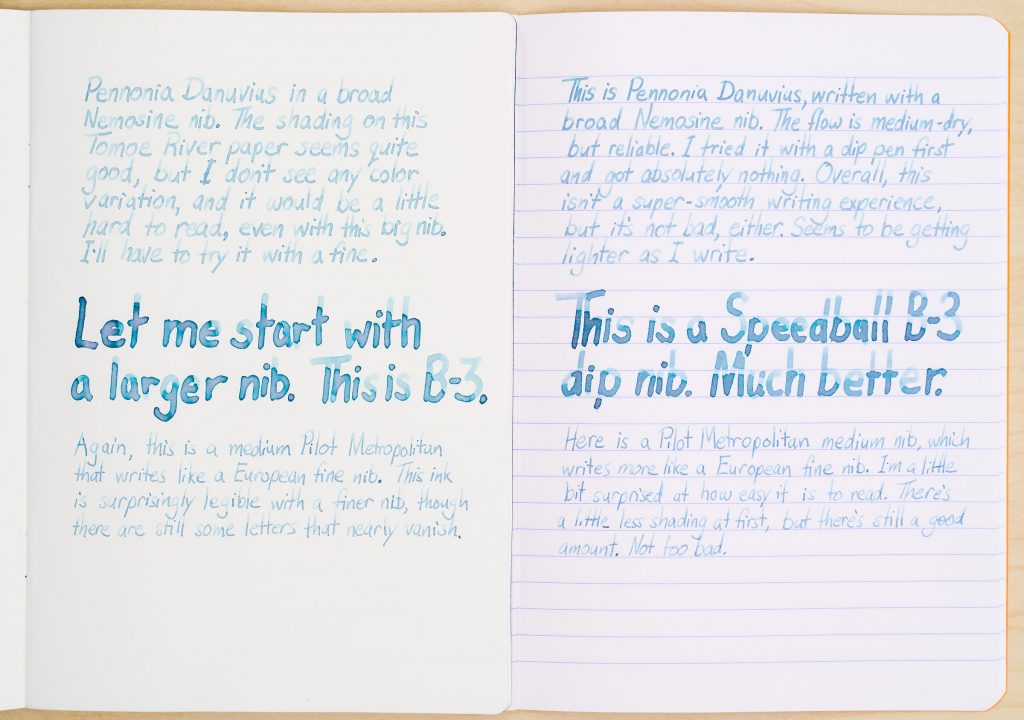 Pennonia Danuvius in a broad
Nemosine nib. The shading on this
Tomoe River paper seems quite
good, but I don't see any color
variation, and it would be a little
hard to read, even with this big nib.
I'll have to try it with a fine.
Let me start with
a larger nib. This is B-3.
Again, this is a medium Pilot Metropolitan
that writes like a European fine nib. This ink
is surprisingly legible with a finer nib, though
there are still some letters that nearly vanish.
This is Pennonia Danuvius, written with a
broad Nemosine nib. The flow is medium-dry,
but reliable. I tried it with a dip pen first
and got absolutely nothing. Overall, this
isn't a super-smooth writing experience,
but it's not bad, either. Seems to be getting
lighter as I write.
This is a Speedball B-3
dip nib. Much better.
Here is a Pilot Metropolitan medium nib, which
writes more like a European fine nib. I'm a little
bit surprised at how easy it is to read. There's
a little less shading at first, but there's still a good
amount. Not too bad.